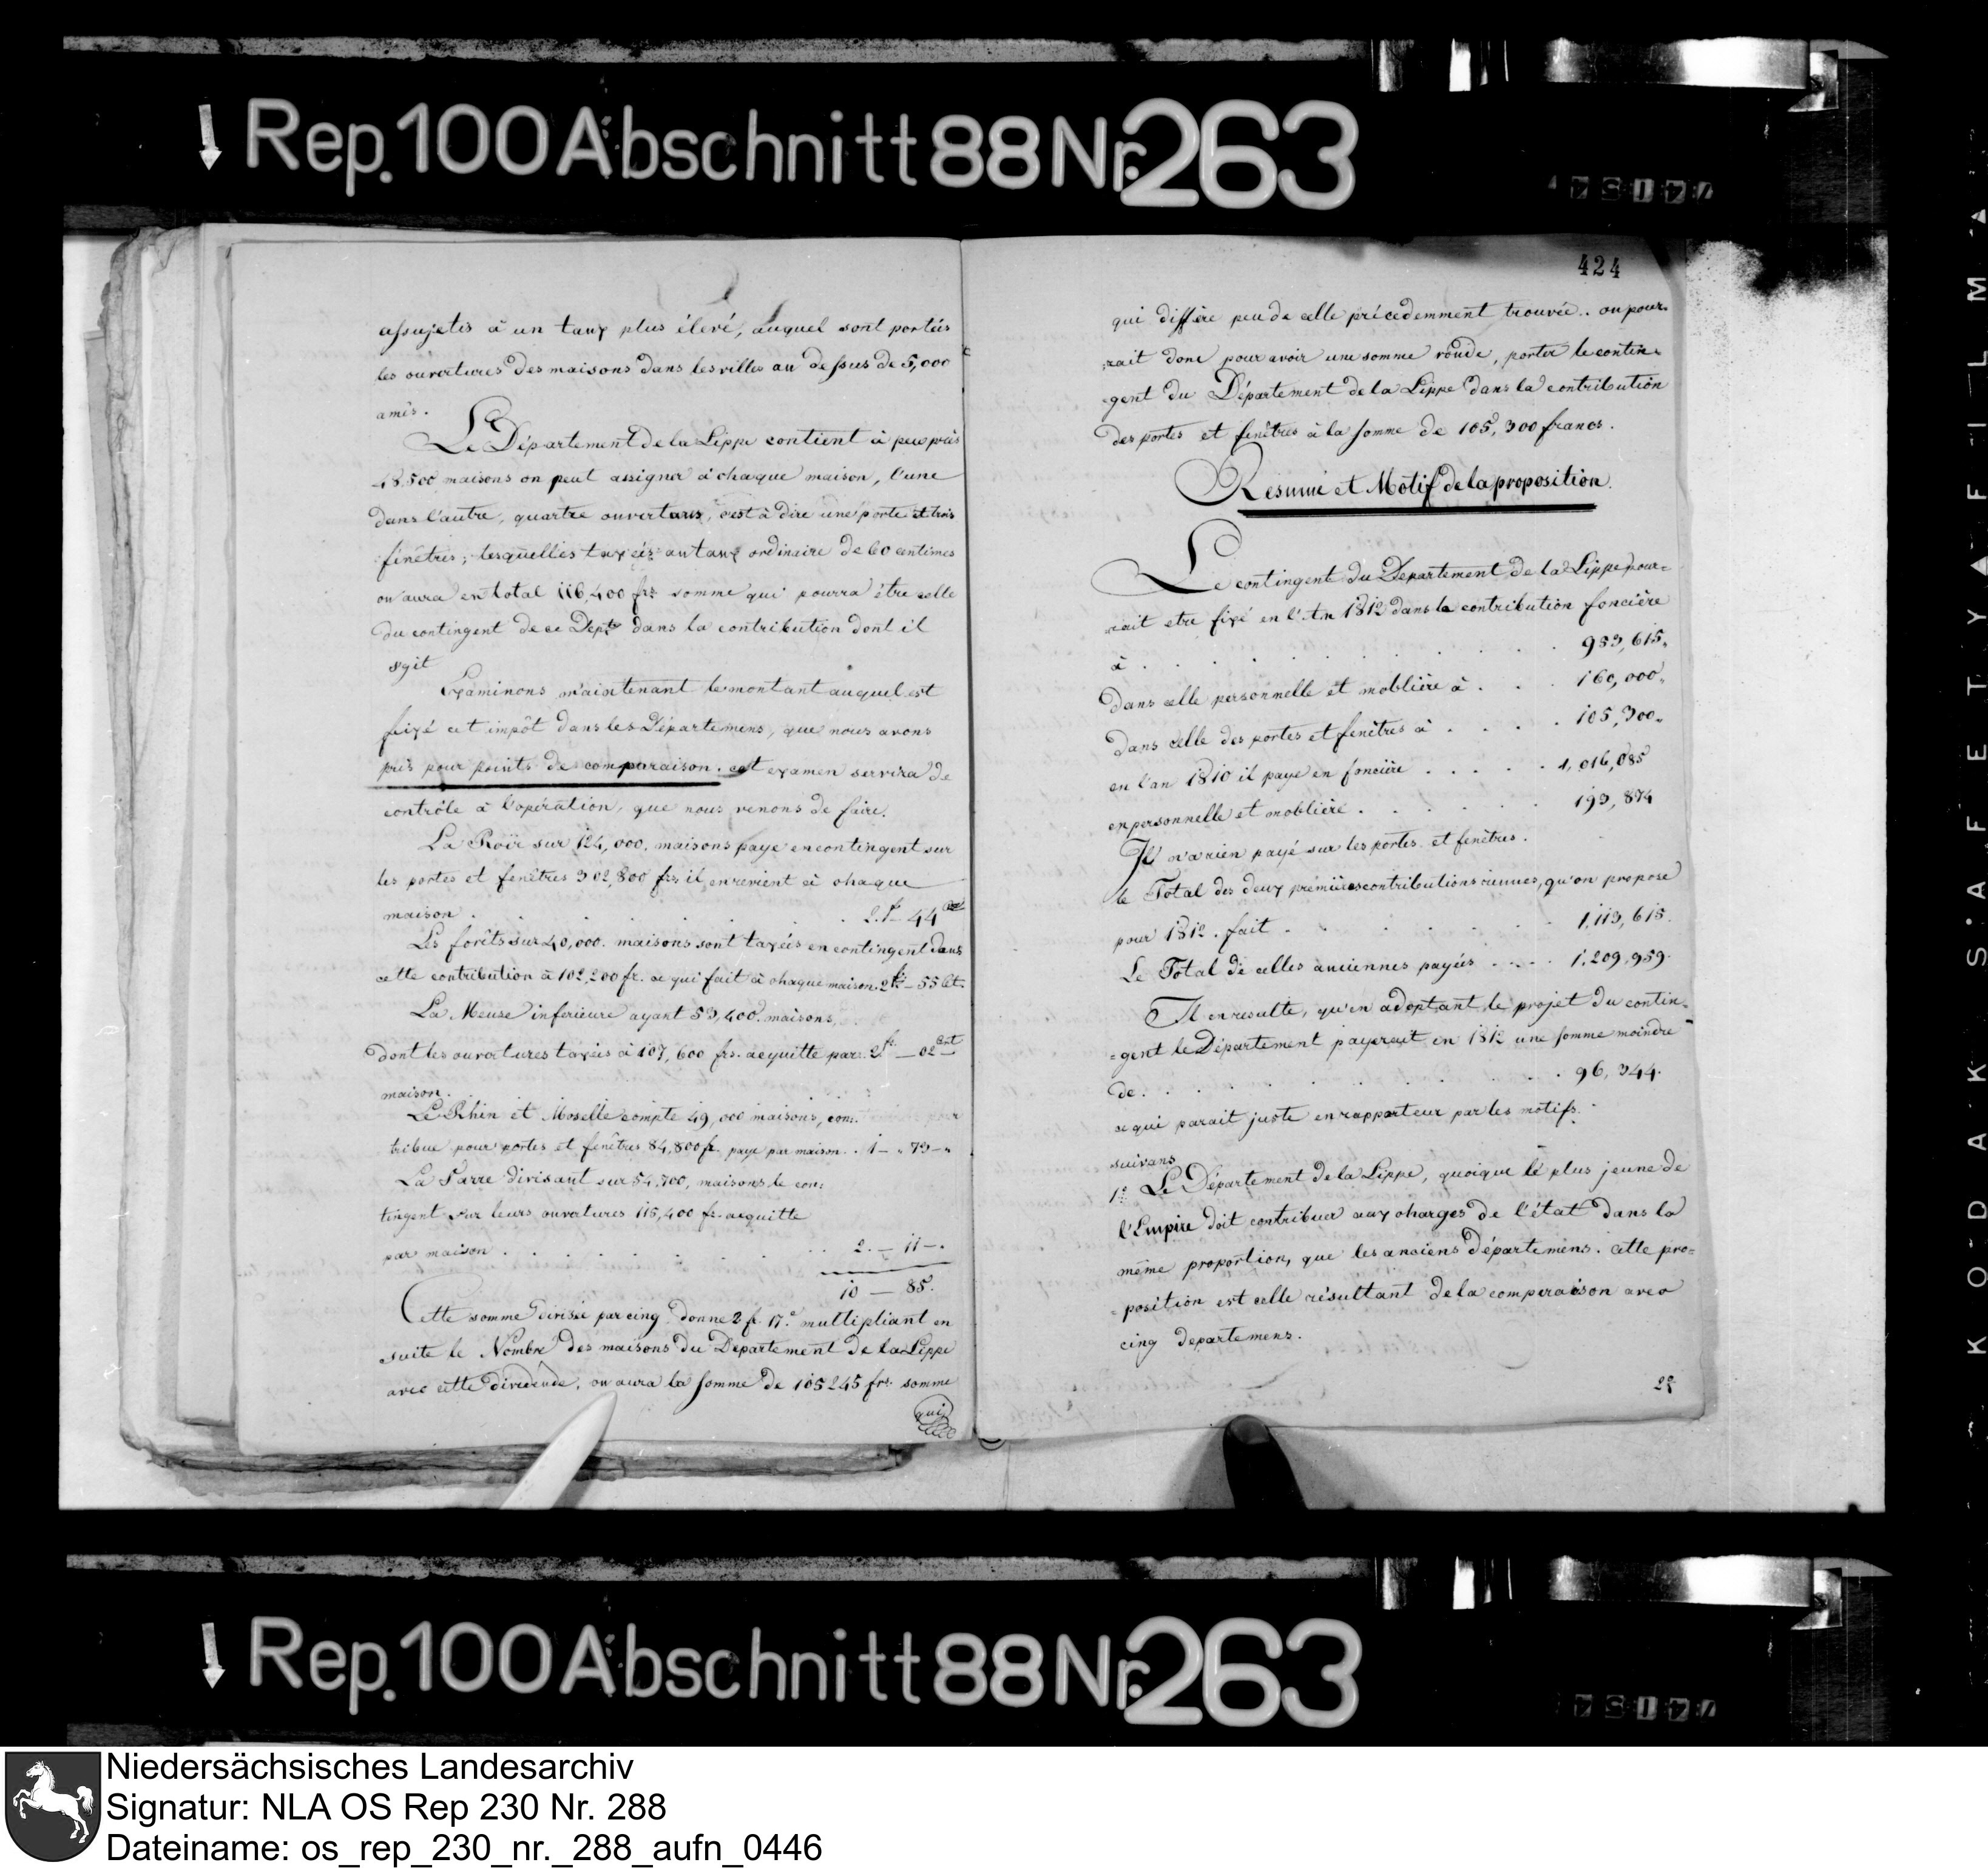 Rep. 100 Abschnitt 88 Nr. 263
assujetis à un taux plus élevé, auquel sont portés
les ouvertures des maisons dans les villes au dessus de 5,000
amis.
Le Département de la Lippe contient à peu près
48.500 maisons on peut assigner à chaque maison, l'une
dans l'autre, quartre ouvertures, c'est à dire une porte et trois
finêtres; lesquelles taxées au taux ordinaire de 60 centimes
on aura en total 116,400 frs. somme qui pourra être celle
du contingent de ce Dept. dans la contribution dont il
sgit
Examinons maintenant le montant auquel est
fixé cet impôt dans les Départemens, que nous avons
pris pour points de comparaison. cet examen servira de
contrôle à l'opération, que nous venons de faire.
La Roër sur 124,000. maisons paye en contingent sur
les portes et fenêtres 302,800 frs. il en revient à chaque
maison . . . . . . 2.fr 44 Ct
Les forêts sur 40,000. maisons sont taxéis en contingent dans
cette contribution à 102,200 fr. ce qui fait à chaque maison. 2 fr. – 55 Ct.
La Meuse inferieure ayant 53,400. maisons,
dont les ouvertures taxéis à 107,600 frs. acquitte par. 2.fr — 02 Cnt
maison.
Le Rhin et Moselle compte 49,000 maisons, con:
tribue pour portes et fenêtres 84,800 fr. paye par maison. . 1 – „ 73 – „
La Sarre divisant sur 54,700, maisons le con:
tingent sur leurs ouvertures 115,400 fr. acquitte
par maison . . . . . . . . 2. – 11 – .
10 — 85.
Cette somme divisée par cinq donne 2 fr. 17.c multipliant en
suite le Nombre des maisons du Departement de la Lippe
avec cette dividende, on aura la somme de 105245 frs. somme
qui
424
qui diffère peu de celle précedemment trouvée.. on pour=
rait donc pour avoir une somme ronde, porter le contin=
gent du Département de la Lippe dans la contribution
des portes et fenêtres à la somme de 105,300 francs.
Resumé et Motif de la proposition.
Le contingent du Departement de la Lippe pour=
rait etre fixé en l'An 1812 dans la contribution foncière
à . . . . . . . . . 953,615„
Dans celle personnelle et moblière à . . . 160,000„
Dans celle des portes et fenêtres à . . . . 105,300„
en l'an 1810 il paye en foncière . . . . . 1,016,085
en personnelle et moblière . . . . . . 193,874
Il n'a rien payé sur les portes et fenêtres.
le Total des deux premières contributions réunies, qu'on propose
pour 1812. fait . . . . . . 1,113,615.
Le Total de celles anciennes payées . . . . 1,209,959.
Il en resulte, qu'en adoptant le projet du contin=
=gent le Département payerait en 1812 une somme moindre
de . . . . . . . . . 96,344.
ce qui parait juste en rapporteur par les motifs
suivans
1.° Le Département de la Lippe, quoique le plus jeune de
l'Empire doit contribuer aux charges de l'état dans la
même proportion, que les anciens départemens. cette pro=
=position est celle résultant de la comparaison avec
cinq departemens.
2.°
KODAK · SAFETY FILM
Rep. 100 Abschnitt 88 Nr. 263
Niedersächsisches Landesarchiv
Signatur: NLA OS Rep 230 Nr. 288
Dateiname: os_rep_230_nr._288_aufn_0446